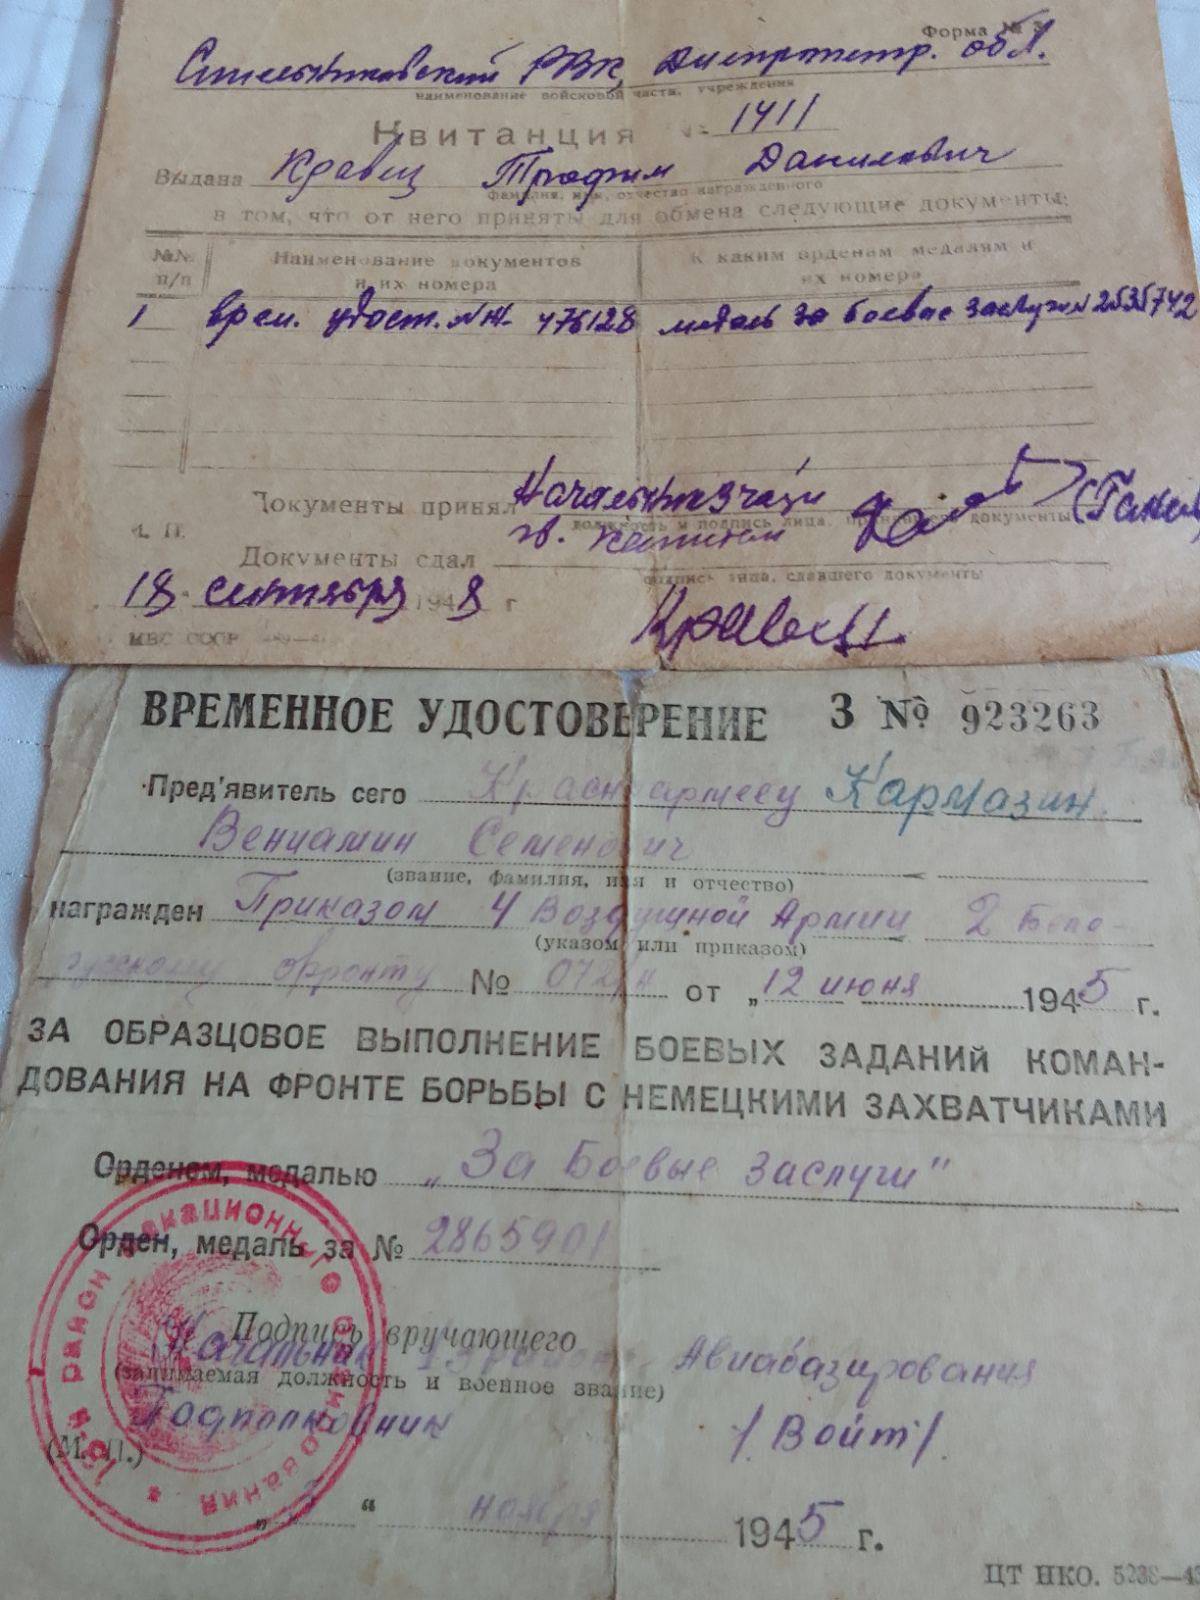 Форма №
Синельниковский РВК, Днепропетр. обл.
наименование войсковой части, учреждения
Квитанция № 1411
Выдана Кравец Трофим Данилович
фамилия, имя, отчество награжденного
в том, что от него приняты для обмена следующие документы:
№№ п/п
Наименование документов и их номера
К каким орденам медалям и их номера
1 врем. удост. № Ж. 476128 медаль за боевые заслуги № 2535742
Документы принял Начальник 3 части
должность и подпись лица, принявшего документы
гв. капитан
М. П.
Документы сдал
подпись лица, сдавшего документы
18 сентября 1948 г
Кравец
МВС СССР
ВРЕМЕННОЕ УДОСТОВЕРЕНИЕ З № 923263
Пред'явитель сего Красноармеец Кармазин
Вениамин Семенович
(звание, фамилия, имя и отчество)
награжден Приказом 4 Воздушной Армии 2 Бело-
(указом или приказом)
русскому фронту № 072/н от „12 июня 1945 г.
ЗА ОБРАЗЦОВОЕ ВЫПОЛНЕНИЕ БОЕВЫХ ЗАДАНИЙ КОМАН-
ДОВАНИЯ НА ФРОНТЕ БОРЬБЫ С НЕМЕЦКИМИ ЗАХВАТЧИКАМИ
Орденом, медалью „За Боевые заслуги"
Орден, медаль за № 2865901
Подпись вручающего
Начальник района Авиабазирования
(занимаемая должность и военное звание)
Подполковник /Войт/
(М. П.)
ноября 1945 г.
ЦТ НКО. 5238—43